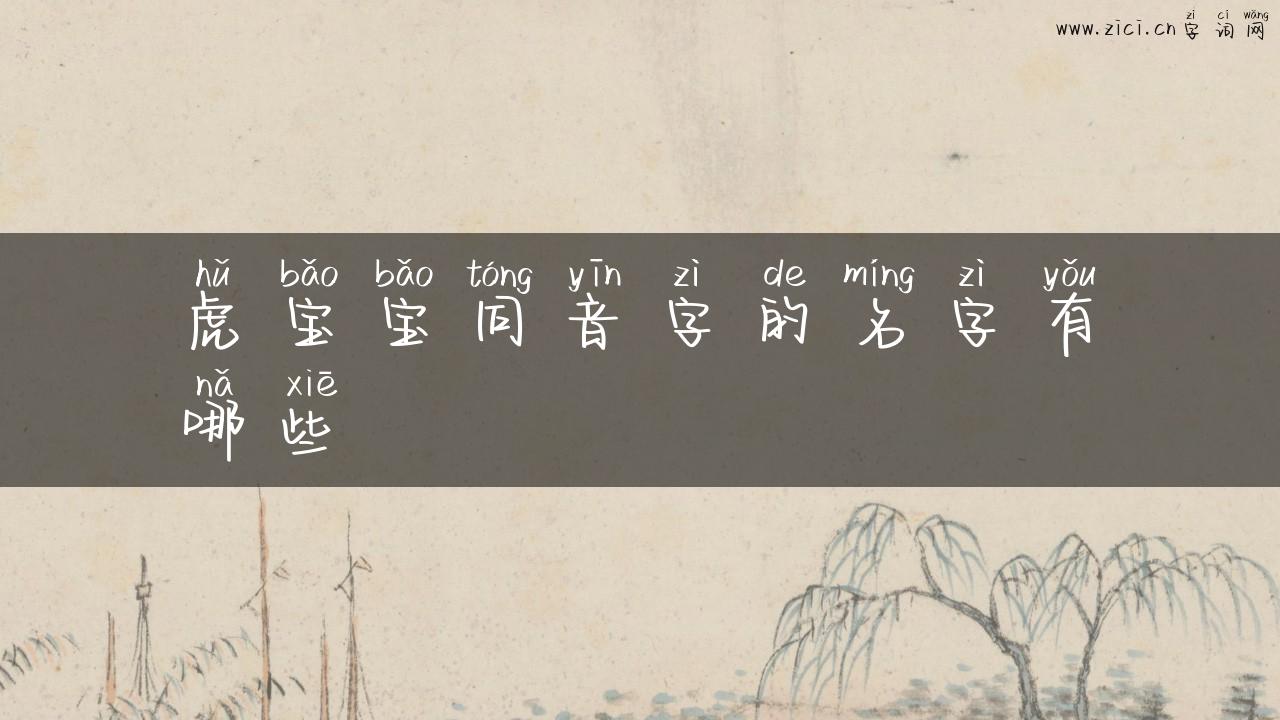 zì cí wǎng
www.zici.cn 字 词 网
hǔ bǎo bǎo tóng yīn zì de míng zì yǒu
虎 宝 宝 同 音 字 的 名 字 有
nǎ xiē
哪 些